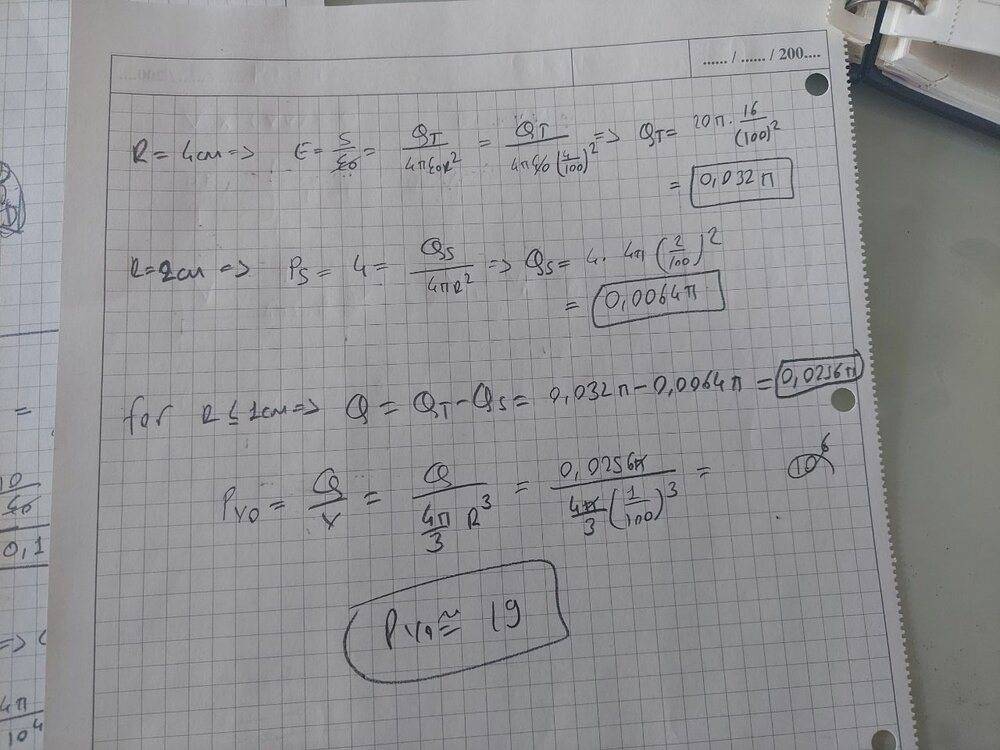 ...... / ...... / 200....
R = 4cm => E = 5/ε0 = QT/4πε0R² = QT/4πε0(4/100)² => QT = 20π · 16/(100)²
= 0,032π
R=2cm => Ps = 4 = Qs/4πR² => Qs = 4 · 4π (2/100)²
= 0,0064π
for R ≤ 1cm => Q = QT - Qs = 0,032π - 0,0064π = 0,0256π
Pv0 = Q/V = Q/(4π/3 R³) = 0,0256π/(4π/3 (1/100)³) = 10⁶
Pv0 ≅ 19
=
10/ε0
0,1
=> (
4π/10⁴